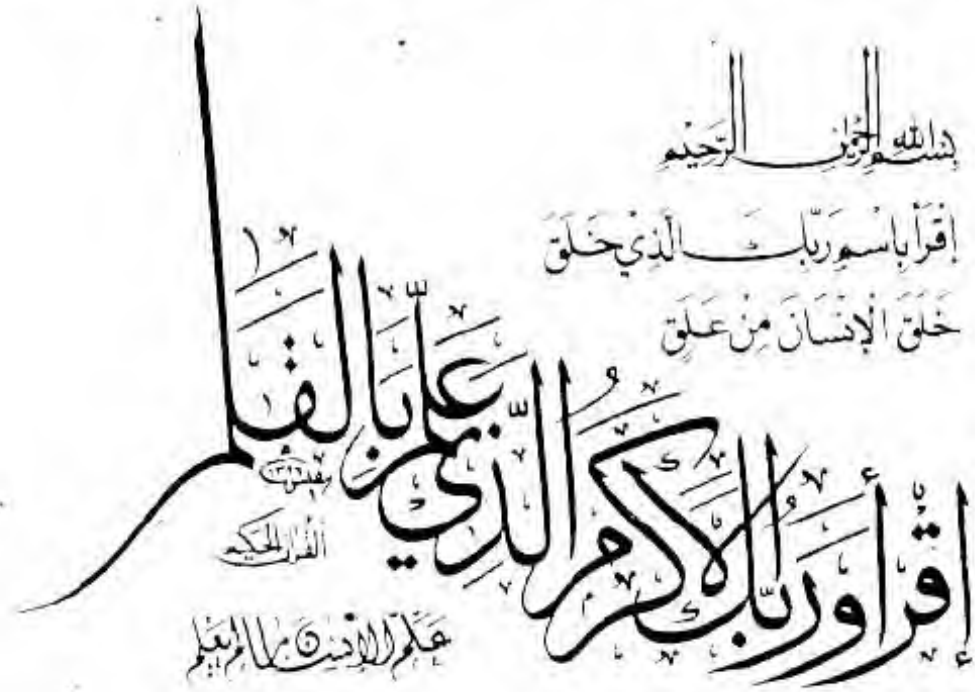 بِسْمِ اللهِ الرَّحْمٰنِ الرَّحِيْمِ
اِقْرَأْ بِاسْمِ رَبِّكَ الَّذِيْ خَلَقَ
خَلَقَ الْاِنْسَانَ مِنْ عَلَقٍ
إقرأ وربك الأكرم الذي علم بالقلم
القرآن الحكيم
علم الإنسان ما لم يعلم